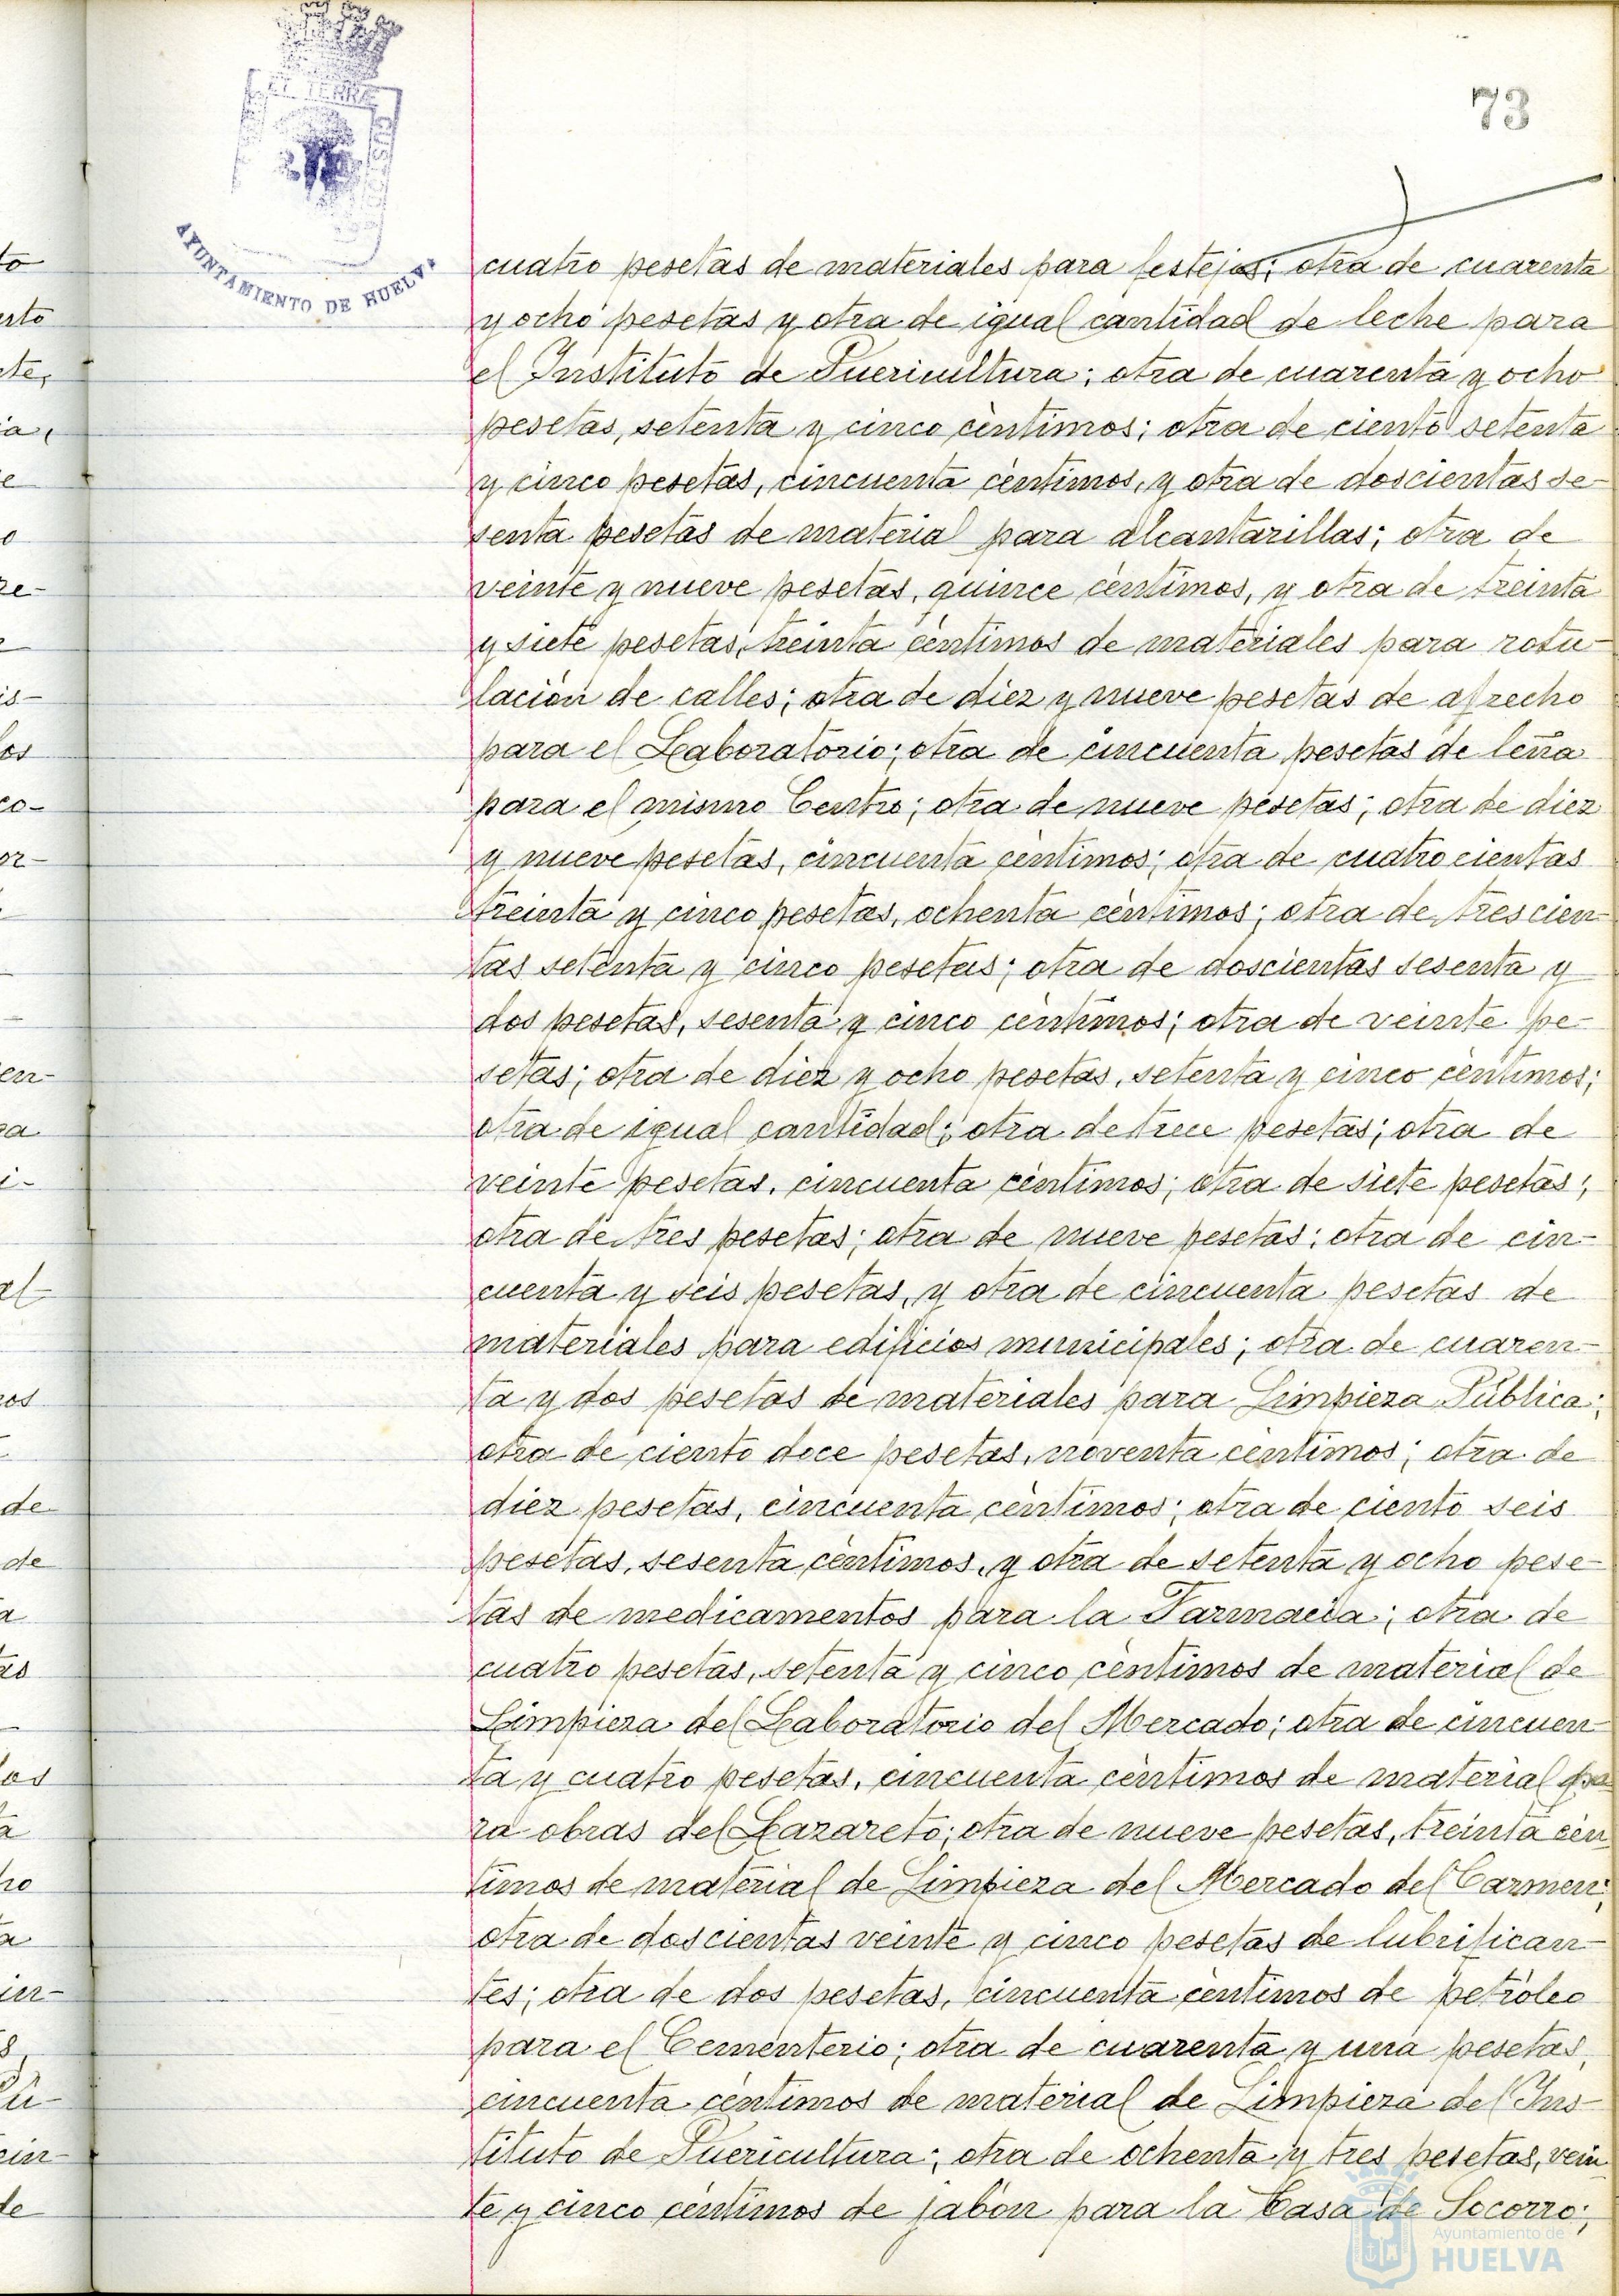 73
EL TERRÆ CUSTO
AYUNTAMIENTO DE HUELVA
cuatro pesetas de materiales para festejos; otra de cuarenta
y ocho pesetas y otra de igual cantidad de leche para
el Instituto de Puericultura; otra de cuarenta y ocho
pesetas, setenta y cinco cèntimos; otra de ciento setenta
y cinco pesetas, cincuenta cèntimos, y otra de doscientas se-
senta pesetas de material para alcantarillas; otra de
veinte y nueve pesetas, quince cèntimos, y otra de treinta
y siete pesetas, treinta cèntimos de materiales para rotu-
laciòn de calles; otra de diez y nueve pesetas de afrecho
para el Laboratorio; otra de cincuenta pesetas de leña
para el mismo Centro; otra de nueve pesetas; otra de diez
y nueve pesetas, cincuenta cèntimos; otra de cuatrocientas
treinta y cinco pesetas, ochenta cèntimos; otra de trescien-
tas setenta y cinco pesetas; otra de doscientas sesenta y
dos pesetas, sesenta y cinco cèntimos; otra de veinte pe-
setas; otra de diez y ocho pesetas, setenta y cinco cèntimos;
otra de igual cantidad; otra de trece pesetas; otra de
veinte pesetas, cincuenta cèntimos; otra de siete pesetas;
otra de tres pesetas; otra de nueve pesetas; otra de cin-
cuenta y seis pesetas, y otra de cincuenta pesetas de
materiales para edificios municipales; otra de cuaren-
ta y dos pesetas de materiales para Limpieza Pùblica;
otra de ciento doce pesetas, noventa cèntimos; otra de
diez pesetas, cincuenta cèntimos; otra de ciento seis
pesetas, sesenta cèntimos, y otra de setenta y ocho pese-
tas de medicamentos para la Farmacia; otra de
cuatro pesetas, setenta y cinco cèntimos de material de
Limpieza del Laboratorio del Mercado; otra de cincuen-
ta y cuatro pesetas, cincuenta cèntimos de material pa-
ra obras del Lazareto; otra de nueve pesetas, treinta cèn
timos de material de Limpieza del Mercado del Carmen;
otra de doscientas veinte y cinco pesetas de lubrifican-
tes; otra de dos pesetas, cincuenta cèntimos de petròleo
para el Cementerio; otra de cuarenta y una pesetas,
cincuenta cèntimos de material de Limpieza del Ins-
tituto de Puericultura; otra de ochenta y tres pesetas, vein
te y cinco cèntimos de jabòn para la Casa de Socorro;
Ayuntamiento de
HUELVA